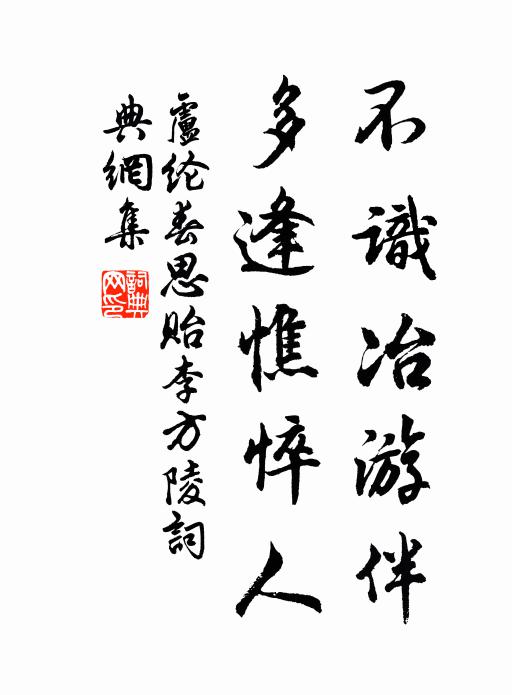 不識冶游伴
多逢憔悴人
盧纶春思貽李方陵詞
典網集
詞典网印